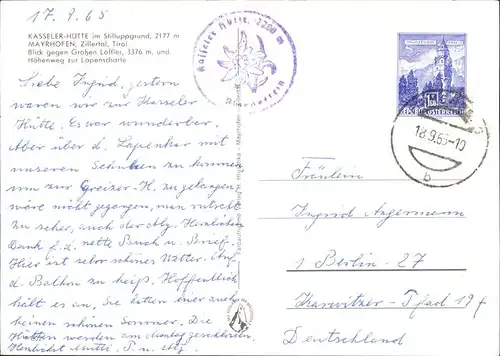 17.9.65
KASSELER-HÜTTE im Stilluppgrund, 2177 m
MAYRHOFEN, Zillertal, Tirol
Blick gegen Großen Löffler, 3376 m, und
Höhenweg zur Lapenscharte
Kasseler Hütte, 2200 m
Alpenverein
18.9.65-10
b
REPUBLIK ÖSTERREICH
Liebe Ingrid, gestern
waren wir zur Kasseler
Hütte. Es war wunderbar.
Aber über d. Lapenkar mit
unseren Schuhen zu kommen
um zur Greizer-H. zu gelangen,
wäre nicht gegangen, man rutscht
zu sehr, auch der Herzlichen
Dank f. d. nette Buch u. Brief.
Hier ist sehr schönes Wetter. Auf
d. Balkon zu heiß. Hoffentlich
hält es an, Sie hatten hier auch
keinen schönen Sommer. Die
Hütten werden am Montag geschlossen.
Herzlichst Mutti,
Fräulein
Ingrid Angermann
1 Berlin - 27
Pfad 19
Deutschland